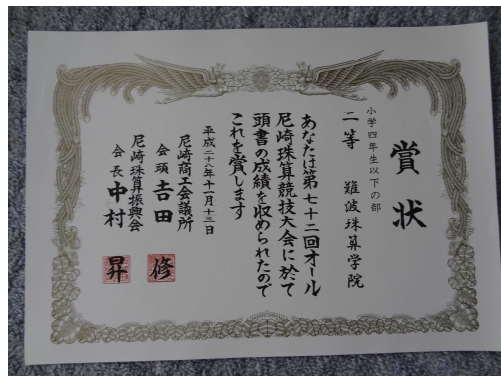 賞状
小学四年生以下の部
二等 難波珠算学院
あなたは第七十二回オール
尼崎珠算競技大会に於て
頭書の成績を収められたので
これを賞します
平成二十六年十一月十三日
尼崎商工会議所
会頭 吉田修
尼崎珠算振興会
会長 中村昇